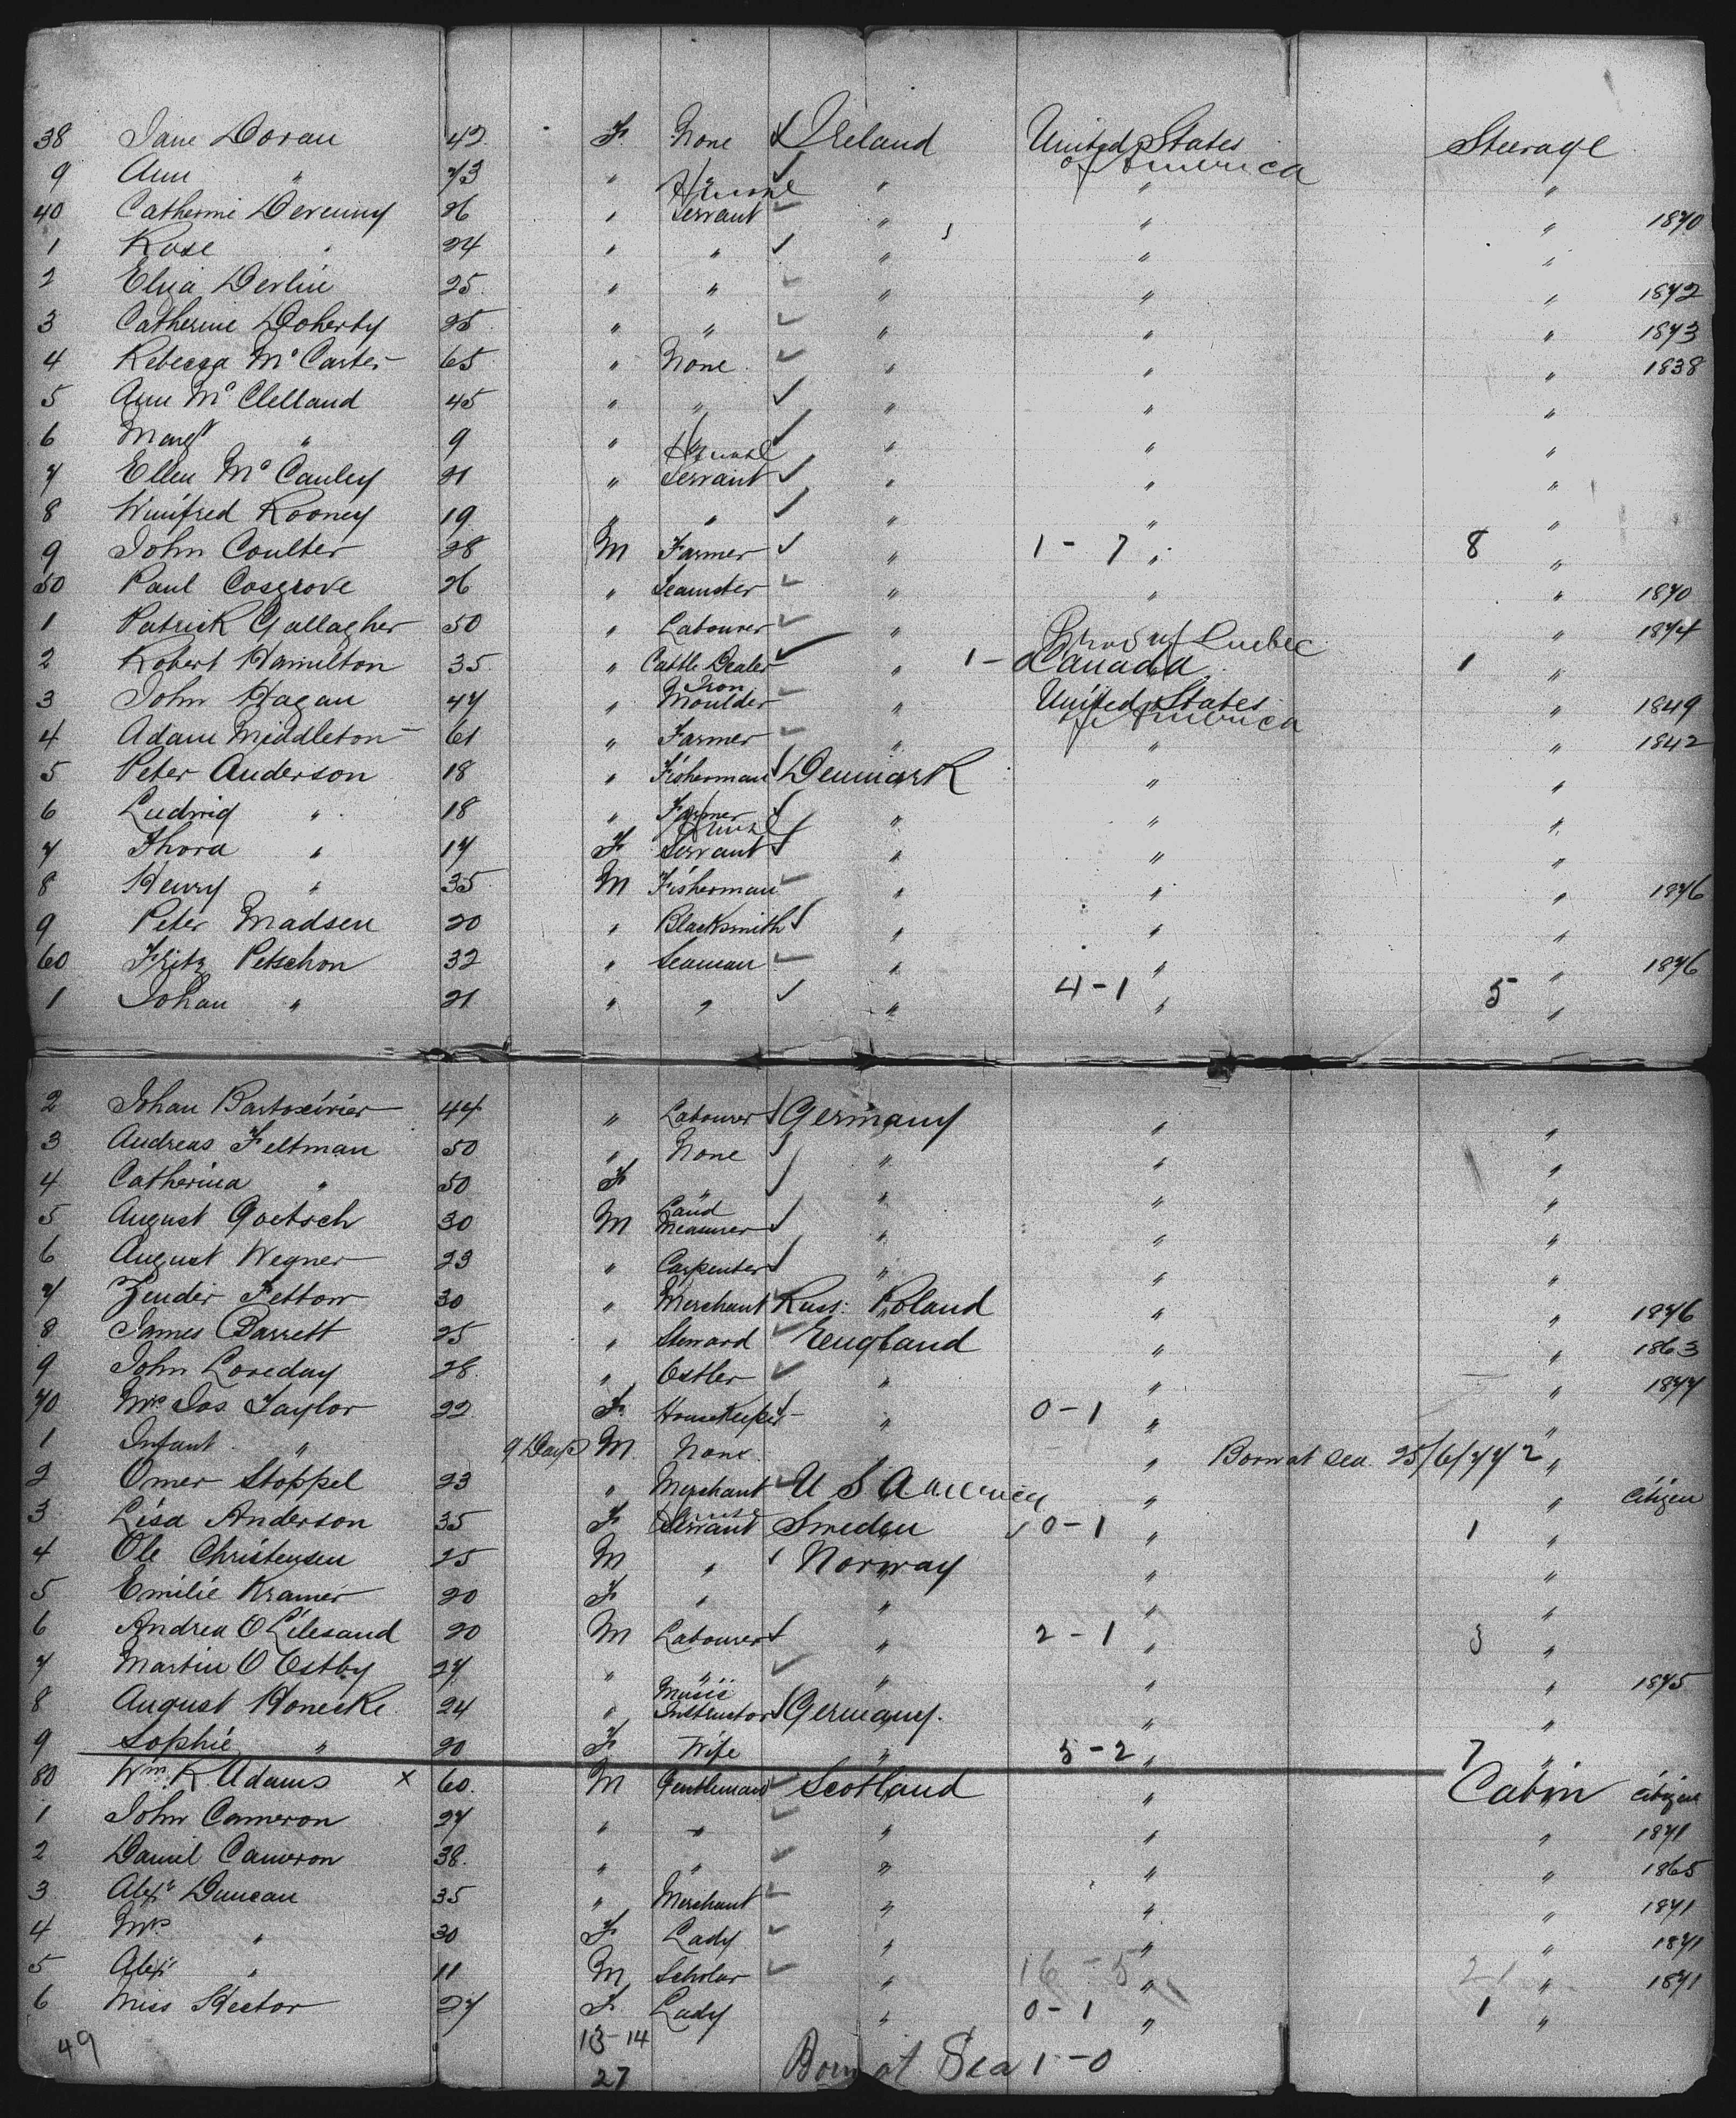 38 Jane Doran 42 F None Ireland United States of America Steerage
9 Ann " 73 " " " " "
House
40 Catherine Devenny 26 " Servant " " " 1870
1 Rose " 24 " " " " "
2 Eliza Devlin 25 " " " " " 1872
3 Catherine Doherty 25 " " " " " 1873
4 Rebecca McCarter 65 " None " " " 1838
5 Ann McClelland 45 " " " " "
6 Margt " 9 " " " " "
House
7 Ellen McCauley 21 " Servant " " "
8 Winifred Rooney 19 " " " " "
9 John Coulter 28 M Farmer " 1-7 " 8 "
50 Paul Cosgrove 26 " Teamster " " " 1870
1 Patrick Gallagher 50 " Labourer " " 1874
Prov of Quebec
2 Robert Hamilton 35 " Cattle Dealer " 1- Canada 1 "
3 John Hagan 47 " Iron Moulder " United States of America " 1849
4 Adam Middleton 61 " Farmer " " " 1842
5 Peter Anderson 18 " Fisherman Denmark " "
6 Ludwig " 18 " Farmer " " "
House
7 Thora " 17 F Servant " " "
8 Henry " 35 M Fisherman " " " 1876
9 Peter Madsen 20 " Blacksmith " " "
60 Fritz Petschon 32 " Seaman " " " 1876
1 Johan " 21 " " " 4-1 " 5 "
2 Johan 44 " Labourer Germany " "
3 Andreas Feltman 50 " None " " "
4 Catherina " 50 F " " " "
5 August Goetsch 30 M Land Measurer " " "
6 August Wegner 23 " Carpenter " " "
7 Zender Fettow 30 " Merchant Russ: Poland " " 1876
8 James Barrett 25 " Steward England " " 1863
9 John Loveday 28 " Ostler " " " 1877
70 Mrs Jos Taylor 22 F Housekeeper " 0-1 " "
1 Infant " 9 Days M None " Born at Sea 25/6/77 2 "
2 Omer Stoppel 23 " Merchant U S America " " Citizen
House
3 Lisa Anderson 35 F Servant Sweden 0-1 " 1 "
4 Ole Christensen 25 M " Norway " "
5 Emilie Kramer 20 F " " " "
6 Andrea O Lilesand 20 M Labourer " 2-1 " 3 "
7 Martin O Ostby 27 " " " " " 1875
8 August Honecke 24 " Music Instructor Germany. " "
9 Sophie " 20 F Wife " 5-2 " 7 "
80 Wm K Adams x 60 M Gentleman Scotland " Cabin Citizen
1 John Cameron 27 " " " " " 1871
2 Daniel Cameron 38 " " " " " 1865
3 Alexr Duncan 35 " Merchant " " " 1871
4 Mrs " 30 F Lady " " " 1871
5 Alexr " 11 M Scholar " 16-5 " 21 " 1871
6 Miss Hector 27 F Lady " 0-1 " 1 "
49 13-14
27 Born at Sea 1-0